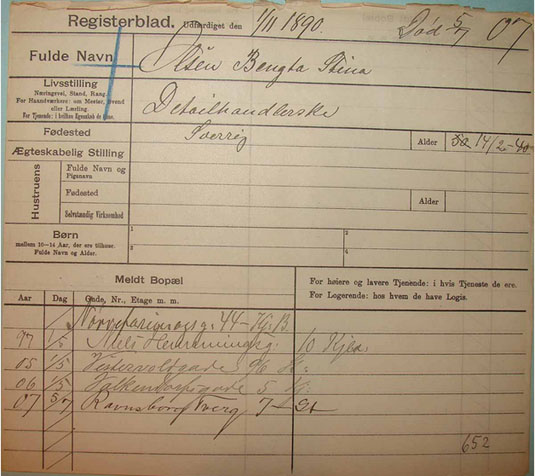 Registerblad. Udfærdiget den 1/11 1890. Død 5/7 07
Fulde Navn Olsen Bengta Stina
Livsstilling
Næringsvej, Stand, Rang.
For Haandværkere: om Mester, Svend
eller Lærling.
For Tjenende: i hvilken Egenskab de tjene.
Detailhandlerske
Fødested Sverrig Alder 50 14/2-40
Ægteskabelig Stilling
Hustruens
Fulde Navn og
Pigenavn
Fødested Alder
Selvstændig Virksomhed
Børn
mellem 10—14 Aar, der ere tilhuse.
Fulde Navn og Alder.
1
2
3
4
Meldt Bopæl
For høiere og lavere Tjenende: i hvis Tjeneste de ere.
For Logerende: hos hvem de have Logis.
Aar Dag Gade, Nr., Etage m. m.
Nørrefarimagsg. 44 - Kj. B.
97 1/5 Niels Hemmingsg. 10 Kjld
05 1/5 Vestervoldgade 96 St:
06 1/5 Valkendorfsgade 5 Kj.
07 5/7 Ravnsborg Tverg 7 - St
652